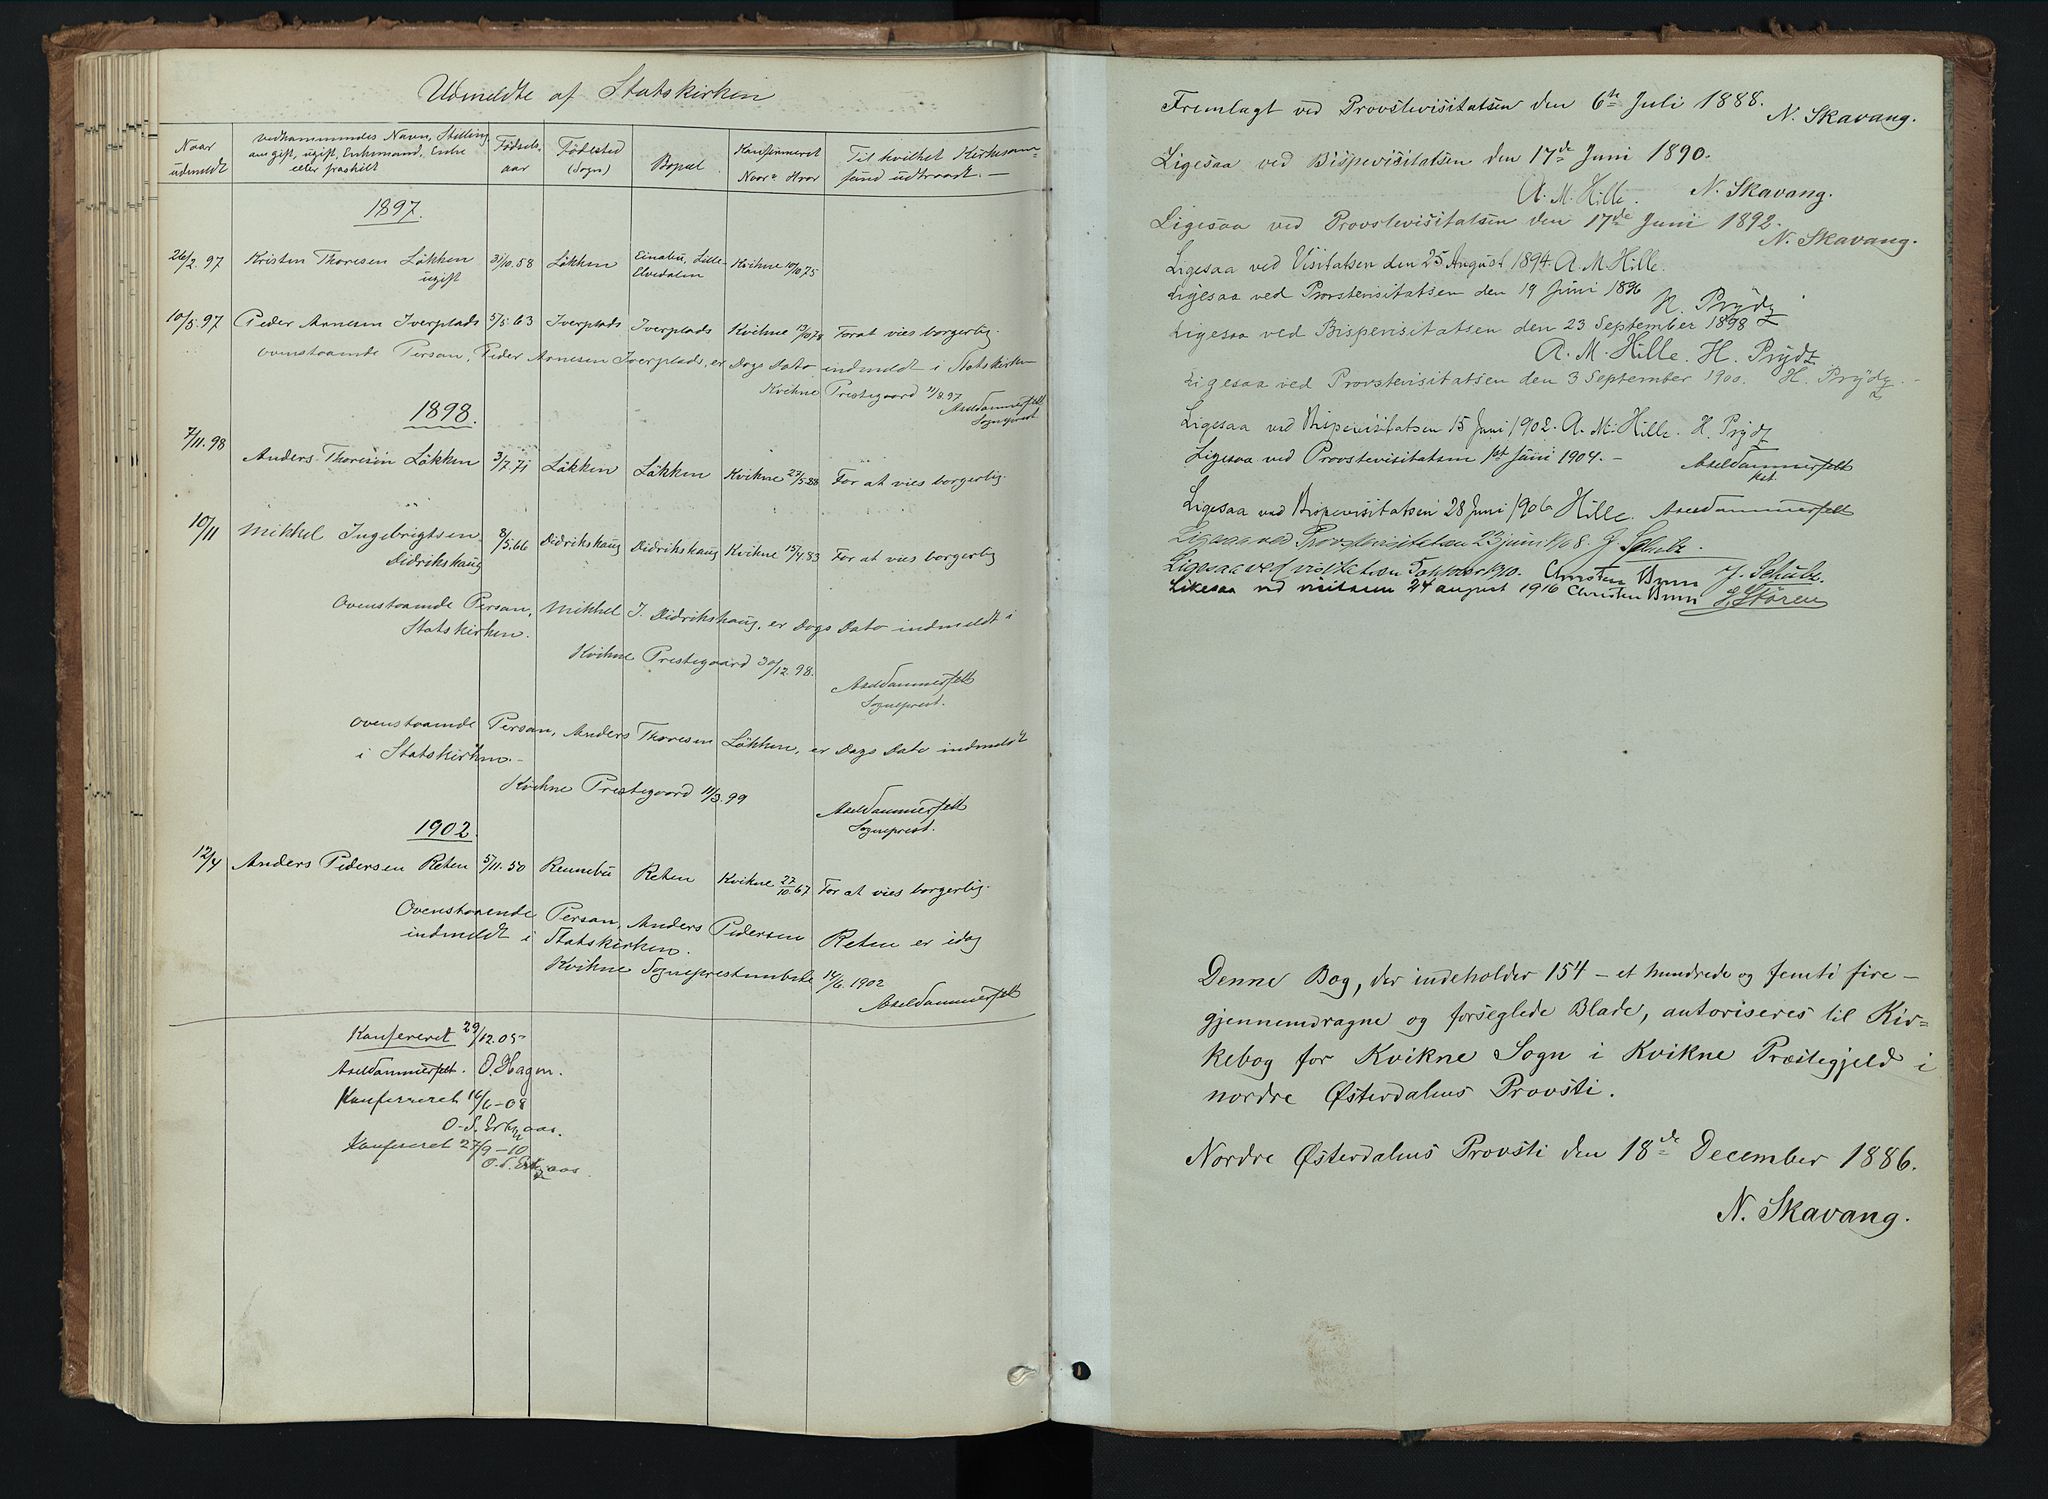 Udmeldte af Statskirken
Naar udmeldt
Vedkommendes Navn, Stilling
om gift, ugift, Enkemand, Enke
eller fraskilt
Fødsels-
aar
Fødested
(Sogn)
Bopæl.
Konfirmeret
Naar? Hvor
Til hvilket Kirkesam-
fund udtraadt. —
1897.
26/2.97 Kristen Thoresen Løkken 31/10.58 Løkken Einabu, Lille- Kvikne 10/10.75
ugift Elvedalen
10/5.97 Peder Arnesen Iverplads 5/5.63 Iverplads Iverplads Kvikne 13/10.78 For at vies borgerlig.
Ovenstaaende Person, Peder Arnesen Iverplads, er Dags Dato indmeldt i Statskirken
Kvikne Prestegaard 11/8.97
Axel Dammerfelt
Sogneprest.
1898.
7/11.98 Anders Thoresen Løkken 3/7.71 Løkken Løkken Kvikne 27/5.88 For at vies borgerlig.
10/11 Mikkel Ingebrigtsen 8/5.66 Didrikshaug Didrikshaug Kvikne 15/4.83 For at vies borgerlig
Didrikshaug
Ovenstaaende Person, Mikkel I. Didrikshaug, er Dags Dato indmeldt i
Statskirken.
Kvikne Prestegaard 30/12.98.
Axel Dammerfelt
Sogneprest.
Ovenstaaende Person, Anders Thoresen Løkken, er Dags Dato indmeldt
i Statskirken. —
Kvikne Prestegaard 11/3.99
Axel Dammerfelt
Sogneprest.
1902.
12/4 Anders Pedersen Reten 5/11.50 Rennebu Reten Kvikne 27/10.67 For at vies borgerlig.
Ovenstaaende Person, Anders Pedersen Reten er idag
indmeldt i Statskirken.
Kvikne Sogneprestembete 14/6.1902
Axel Dammerfelt
Konfereret 29/12.05
Axel Dammerfelt. O. Hagen.
Konfereret 16/6-08
Konfereret 27/9-10
Fremlagt ved Provstevisitatsen den 6te Juli 1888.
N. Skavang.
Ligesaa ved Bispevisitatsen den 17de Juni 1890.
A. M. Hille. N. Skavang.
Ligesaa ved Provstevisitatsen den 17de Juni 1892.
N. Skavang.
Ligesaa ved Visitatsen den 25 August 1894. A. M. Hille.
Ligesaa ved Provstevisitatsen den 19 Juni 1896
H. Prÿdz
Ligesaa ved Bispevisitatsen den 23 September 1898
A. M. Hille. H. Prÿdz
Ligesaa ved Provstevisitatsen den 3 September 1900. H. Prÿdz.
Ligesaa ved Bispevisitatsen 15 Juni 1902. A. M. Hille. H. Prÿdz
Ligesaa ved Provstevisitatsen 1st Juni 1904. — Axel Dammerfelt
Kst.
Ligesaa ved Bispevisitatsen 28 Juni 1906 Hille. Axel Dammerfelt
Ligesaa ved Provstevisitatsen 23 juni 1908. J. Schulz.
Ligesaa ved visitatsen 1910. Christen Brun J. Schulz.
Likesaa ved visitasen 24 august 1916 Christen Brun Støren
Denne Bog, der indeholder 154 — et hundrede og femti fire —
gjennemdragne og forseglede Blade, autoriseres til Kir=
kebog for Kvikne Sogn i Kvikne Præstegjeld i
nordre Østerdalens Provsti.
Nordre Østerdalens Provsti den 18de December 1886.
N. Skavang.